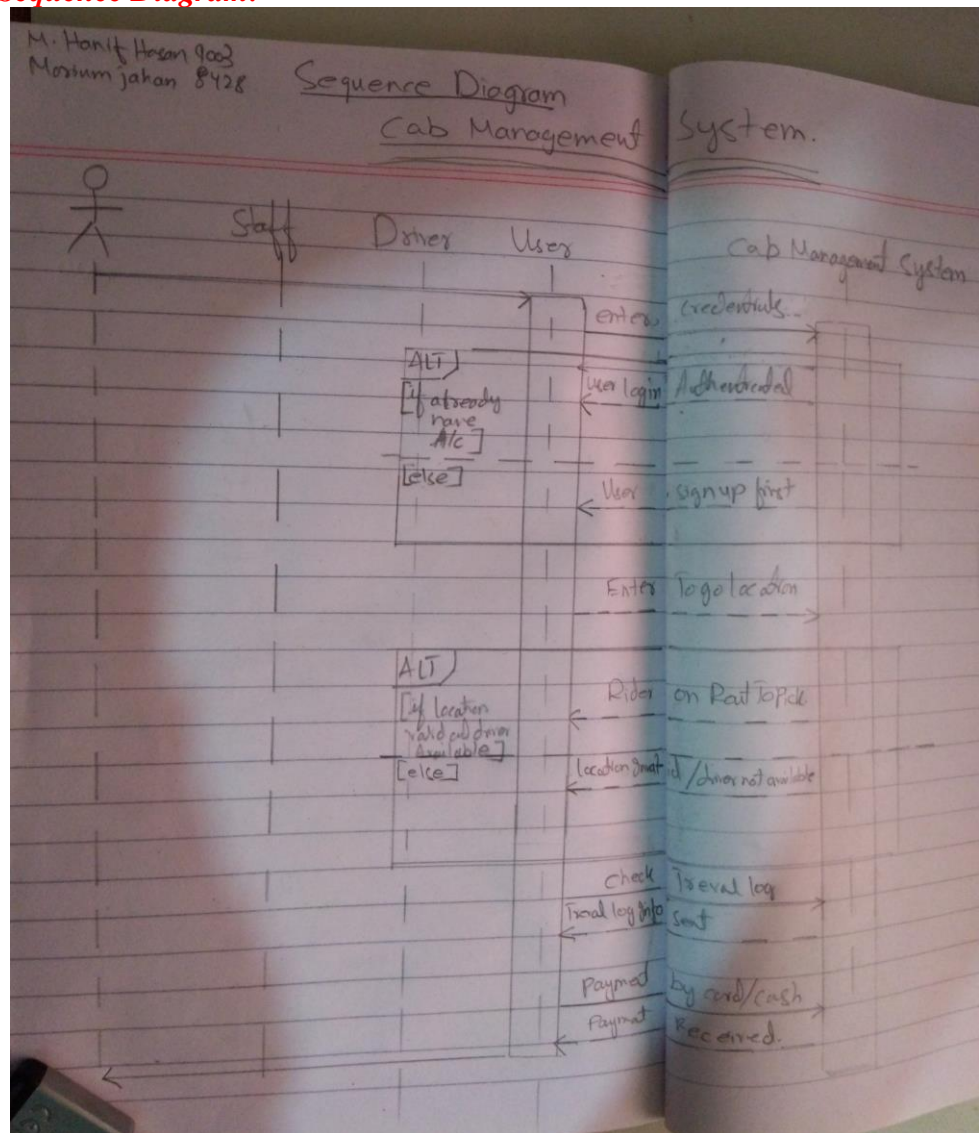 Sequence Diagram:
M. Hanif Hasan 9003
Morium jahan 8428
Sequence Diagram
Cab Management System.
Staff Driver User Cab Management System
enter credentials
ALT
[if already
have
A/c]
User login Authenticated
[else]
User signup first
Enter To go location
ALT
[if location
valid and driver
Available]
Rider on Rout To Pick
[else]
location Invalid / driver not available
check Treval log
Treval log Info sent
Payment by card/cash
Payment Received.